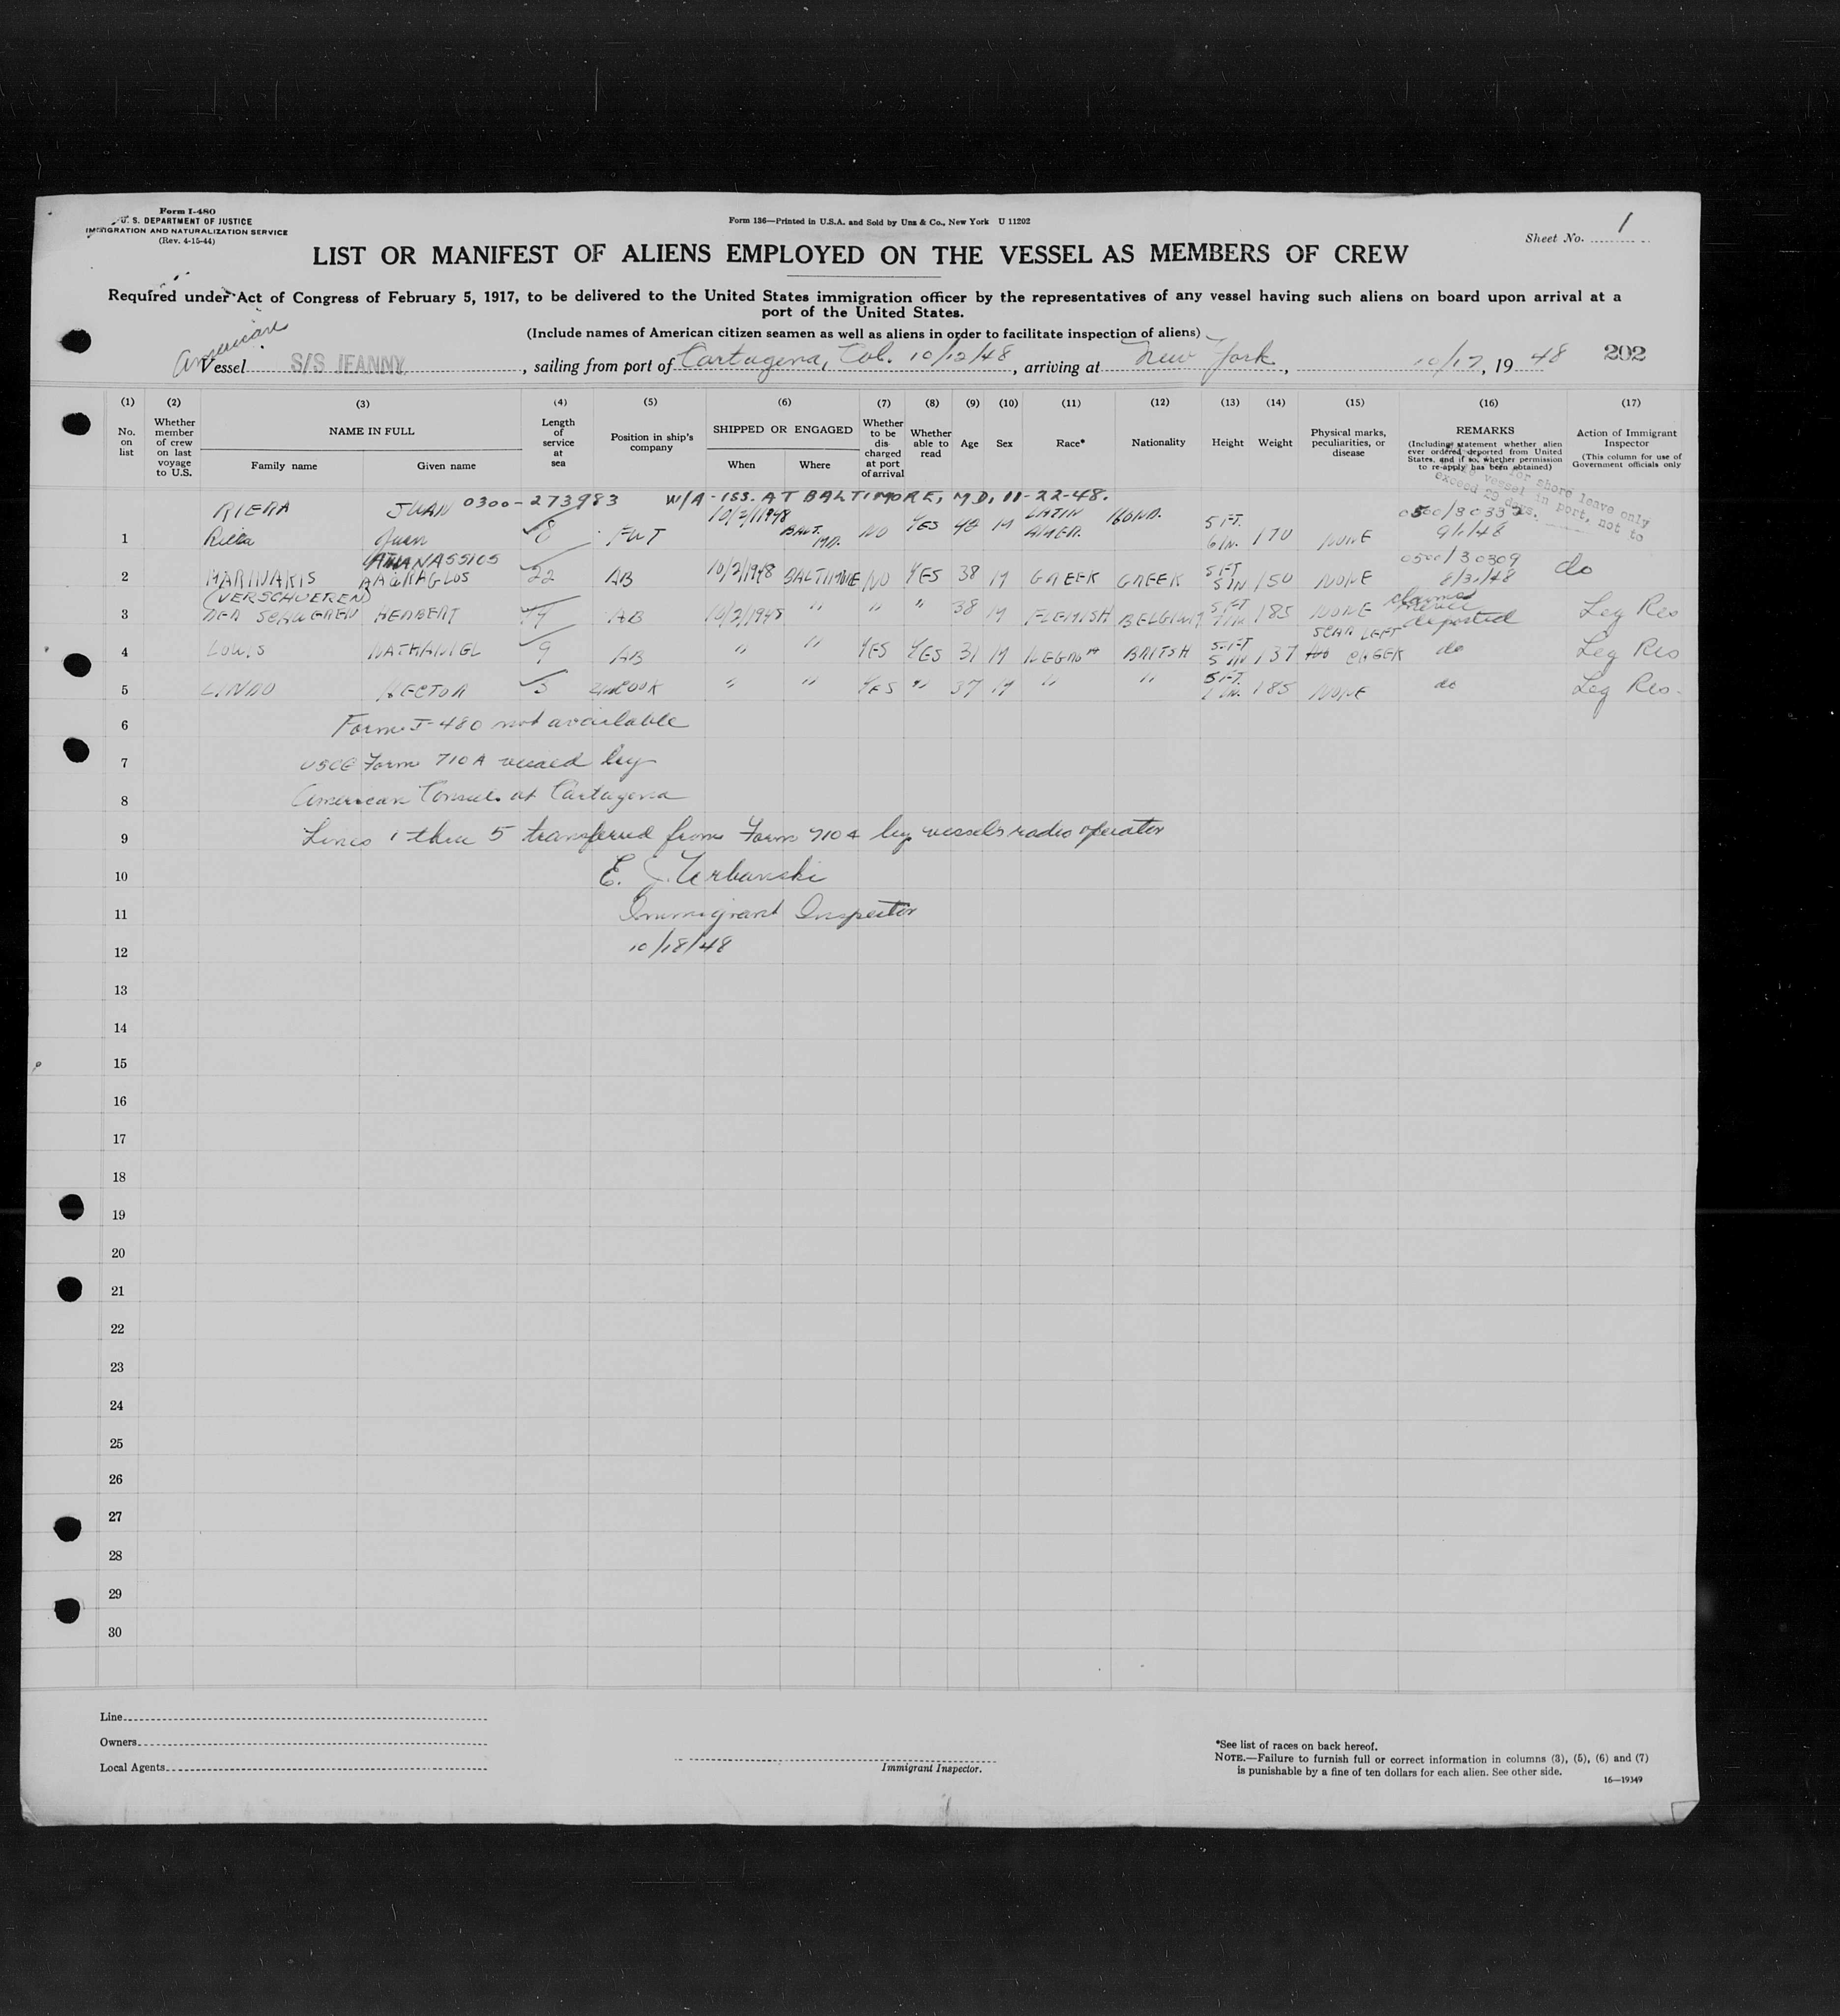 Form I-480
U. S. DEPARTMENT OF JUSTICE
IMMIGRATION AND NATURALIZATION SERVICE
(Rev. 4-15-44)
Form 136—Printed in U.S.A. and Sold by Unz & Co., New York U 11202
Sheet No. 1
LIST OR MANIFEST OF ALIENS EMPLOYED ON THE VESSEL AS MEMBERS OF CREW
Required under Act of Congress of February 5, 1917, to be delivered to the United States immigration officer by the representatives of any vessel having such aliens on board upon arrival at a
port of the United States.
(Include names of American citizen seamen as well as aliens in order to facilitate inspection of aliens)
American
Vessel S/S JEANNY, sailing from port of Cartagena, Col. 10/12/48, arriving at New York, 10/17, 1948 202
(1) (2) (3) (4) (5) (6) (7) (8) (9) (10) (11) (12) (13) (14) (15) (16) (17)
No. on list
Whether member of crew on last voyage to U.S.
NAME IN FULL
Family name
Given name
Length of service at sea
Position in ship's company
SHIPPED OR ENGAGED
When
Where
Whether to be discharged at port of arrival
Whether able to read
Age
Sex
Race*
Nationality
Height
Weight
Physical marks, peculiarities, or disease
REMARKS
(Including statement whether alien ever ordered deported from United States, and if so, whether permission to re-apply has been obtained)
Action of Immigrant Inspector
(This column for use of Government officials only
for shore leave only
vessel in port, not to
exceed 29 days.
RIERA JUAN 0300-273983 W/A-ISS. AT BALTIMORE, MD, 11-22-48.
1 Juan 8 FWT 10/2/1948 BALT. MD. NO YES M LATIN AMER. HOND. 5 FT. 6 IN. 170 NONE 9/1/48
ATHANASSIOS
2 MARINAKIS 22 AB 10/2/1948 BALTIMORE NO YES 38 M GREEK GREEK 5 FT 5 IN 150 NONE 0500/30309 8/31/48 do
(VERSCHUEREN)
3 HERBERT AB 10/2/1948 " " " 38 M FLEMISH BELGIUM 5 FT 185 NONE claimed never deported Leg Res
4 LOUIS NATHANIEL 9 AB " " YES YES 31 M NEGRO BRITSH 5 FT 5 IN 137 SCAR LEFT CHEEK do Leg Res
5 LINDO HECTOR 5 2nd COOK " " YES " 37 M " " 5 FT. 185 NONE do Leg Res.
6 Form I-480 not available
7 USCG Form 710A visaed by
8 American Consul at Cartagena
9 Lines 1 thru 5 transferred from Form 710A by vessels radio operator
10 E. J. Urbanski
11 Immigrant Inspector
12 10/18/48
13
14
15
16
17
18
19
20
21
22
23
24
25
26
27
28
29
30
Line
Owners
Local Agents
Immigrant Inspector.
*See list of races on back hereof.
NOTE.—Failure to furnish full or correct information in columns (3), (5), (6) and (7)
is punishable by a fine of ten dollars for each alien. See other side.
16—19349